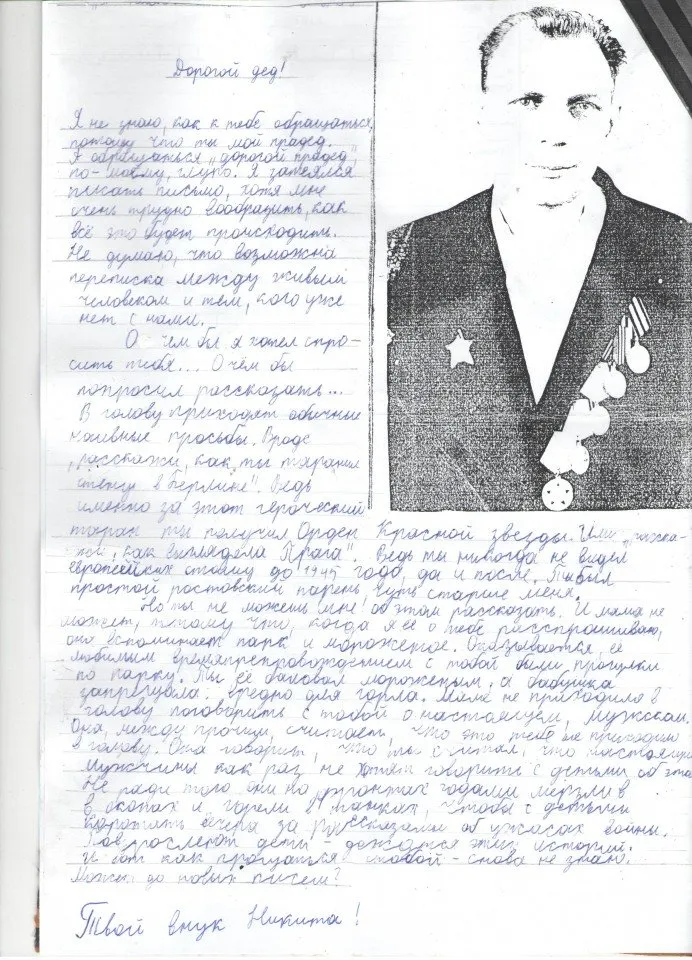 Дорогой дед!
Я не знаю, как к тебе обращаться,
потому что ты мой прадед.
А обращаться „дорогой прадед",
по-моему, глупо. Я затеялся
писать письмо, хотя мне
очень трудно вообразить, как
всё это будет происходить.
Не думаю, что возможна
переписка между живым
человеком и тем, кого уже
нет с нами.
О чем бы я хотел спро-
сить тебя... О чём бы
попросил рассказать...
В голову приходят обычные
наивные просьбы. Вроде
„расскажи, как ты таранил
стену в Берлине". Ведь
именно за этот героический
таран ты получил Орден Красной звезды. Или „расска-
жи, как выглядела Прага". Ведь ты никогда не видел
европейских столиц до 1945 года, да и после. Ты был
простой ростовский парень, чуть старше меня.
Но ты не можешь мне об этом рассказать. И мама не
может, потому что, когда я её о тебе расспрашиваю,
она вспоминает парк и мороженое. Оказывается, её
любимым времяпрепровождением с тобой были прогулки
по парку. Ты её баловал мороженым, а бабушка
запрещала: вредно для горла. Маме не приходило в
голову поговорить с тобой о настоящем, мужском.
Она, между прочим, считает, что это тебе не приходило
в голову. Она говорит, что ты считал, что настоящие
мужчины как раз не хотят говорить с детьми об этом.
Не ради того они на фронтах годами мерзли
в окопах и горели в танках, чтобы с детьми
коротать вечера за рассказами об ужасах войны.
дети - этих историй.
И вот как прощаться с тобой - снова не знаю.
Может, до новых писем?
Твой внук Никита!